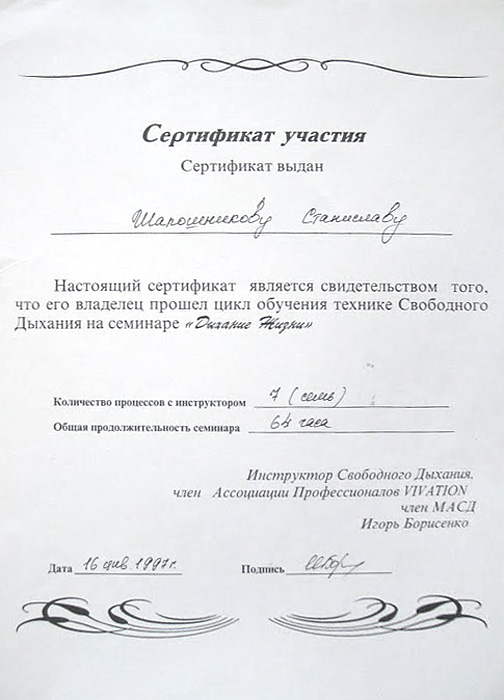 Сертификат участия
Сертификат выдан
Шапошникову Станиславу
Настоящий сертификат является свидетельством того,
что его владелец прошел цикл обучения технике Свободного
Дыхания на семинаре «Дыхание Жизни»
Количество процессов с инструктором 7 (семь)
Общая продолжительность семинара 64 часа
Инструктор Свободного Дыхания,
член Ассоциации Профессионалов VIVATION
член МАСД
Игорь Борисенко
Дата 16 фев. 1997г. Подпись